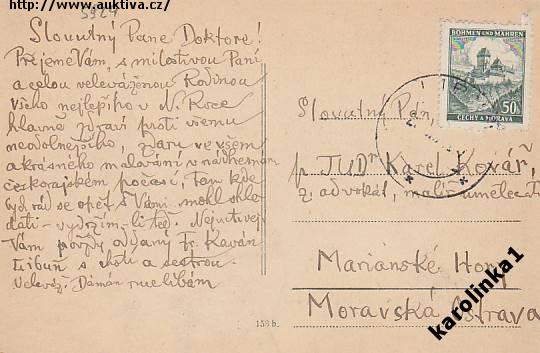 http://www.auktiva.cz/
5924
Slovutný Pane Doktore!
Přejeme Vám, s milostivou Paní
a celou velevaženou Rodinou
všeho nejlepšího v N. Roce
hlavně zdraví proti všemu
neodolného, zdaru ve všem
a krásného malování v nádherném
českorajském počasí, tam kde
bych rád se opět s Vámi mohl shle
dati - vydržím-li též. Nejuctivěj
Vám vždy oddaný Fr. Kaván
Libuň s chotí a sestrou
Velevěž. Dámám ruce líbám
BÖHMEN UND MÄHREN
50h
ČECHY A MORAVA
Slovutný Pán,
p. JUDr Karel Kovář,
z. advokát, malíř umělec
Mariánské Hory
Moravská Ostrava
153 b.
karolinka1